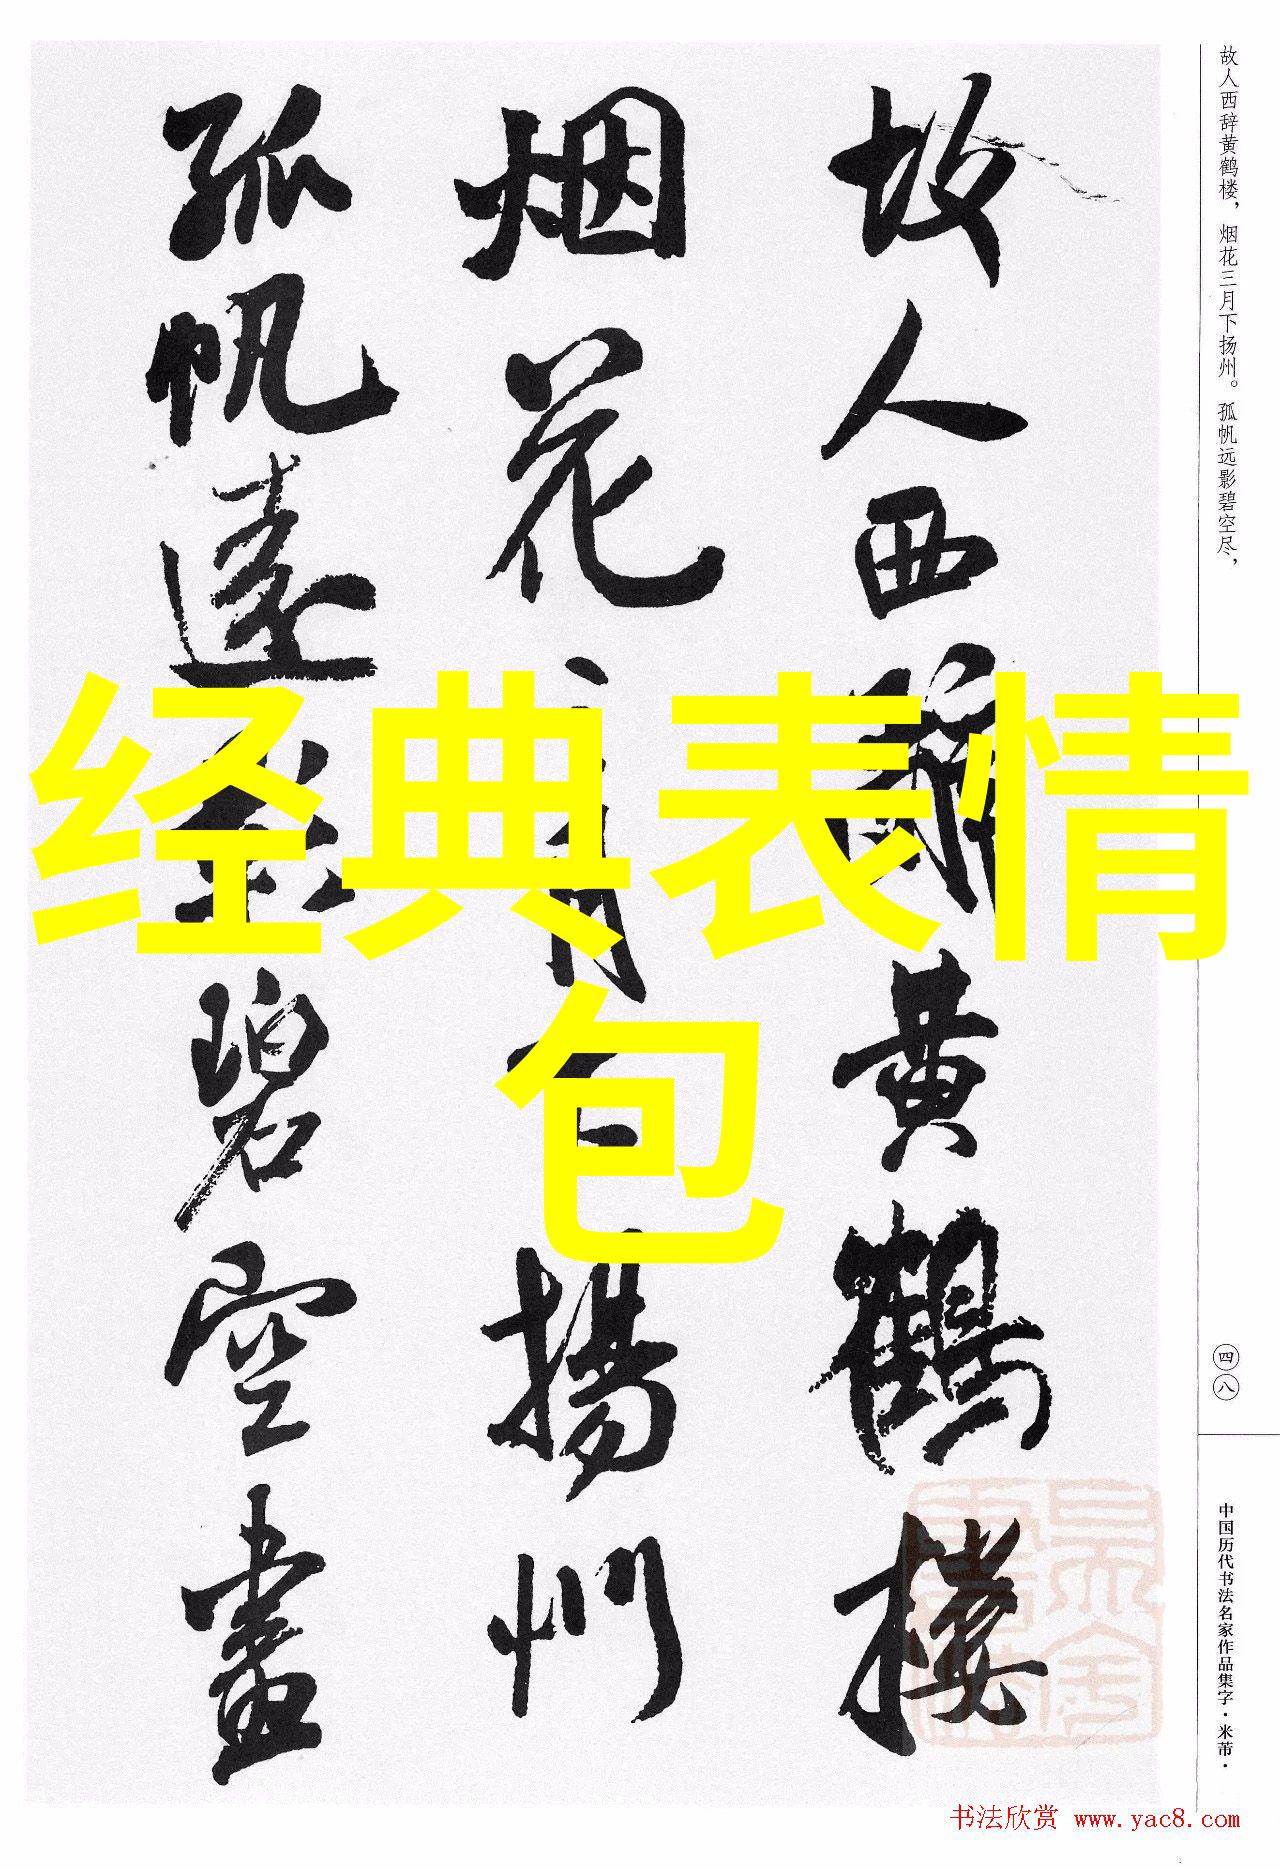 故人西辞黄鹤楼，烟花三月下扬州。孤帆远影碧空尽，
故人西辭黄鹤楼
烟花三月下揚州
孤帆遠影碧空盡
经典表情
包
四八
中国历代书法名家作品集字·米芾·
书法欣赏 www.yac8.com